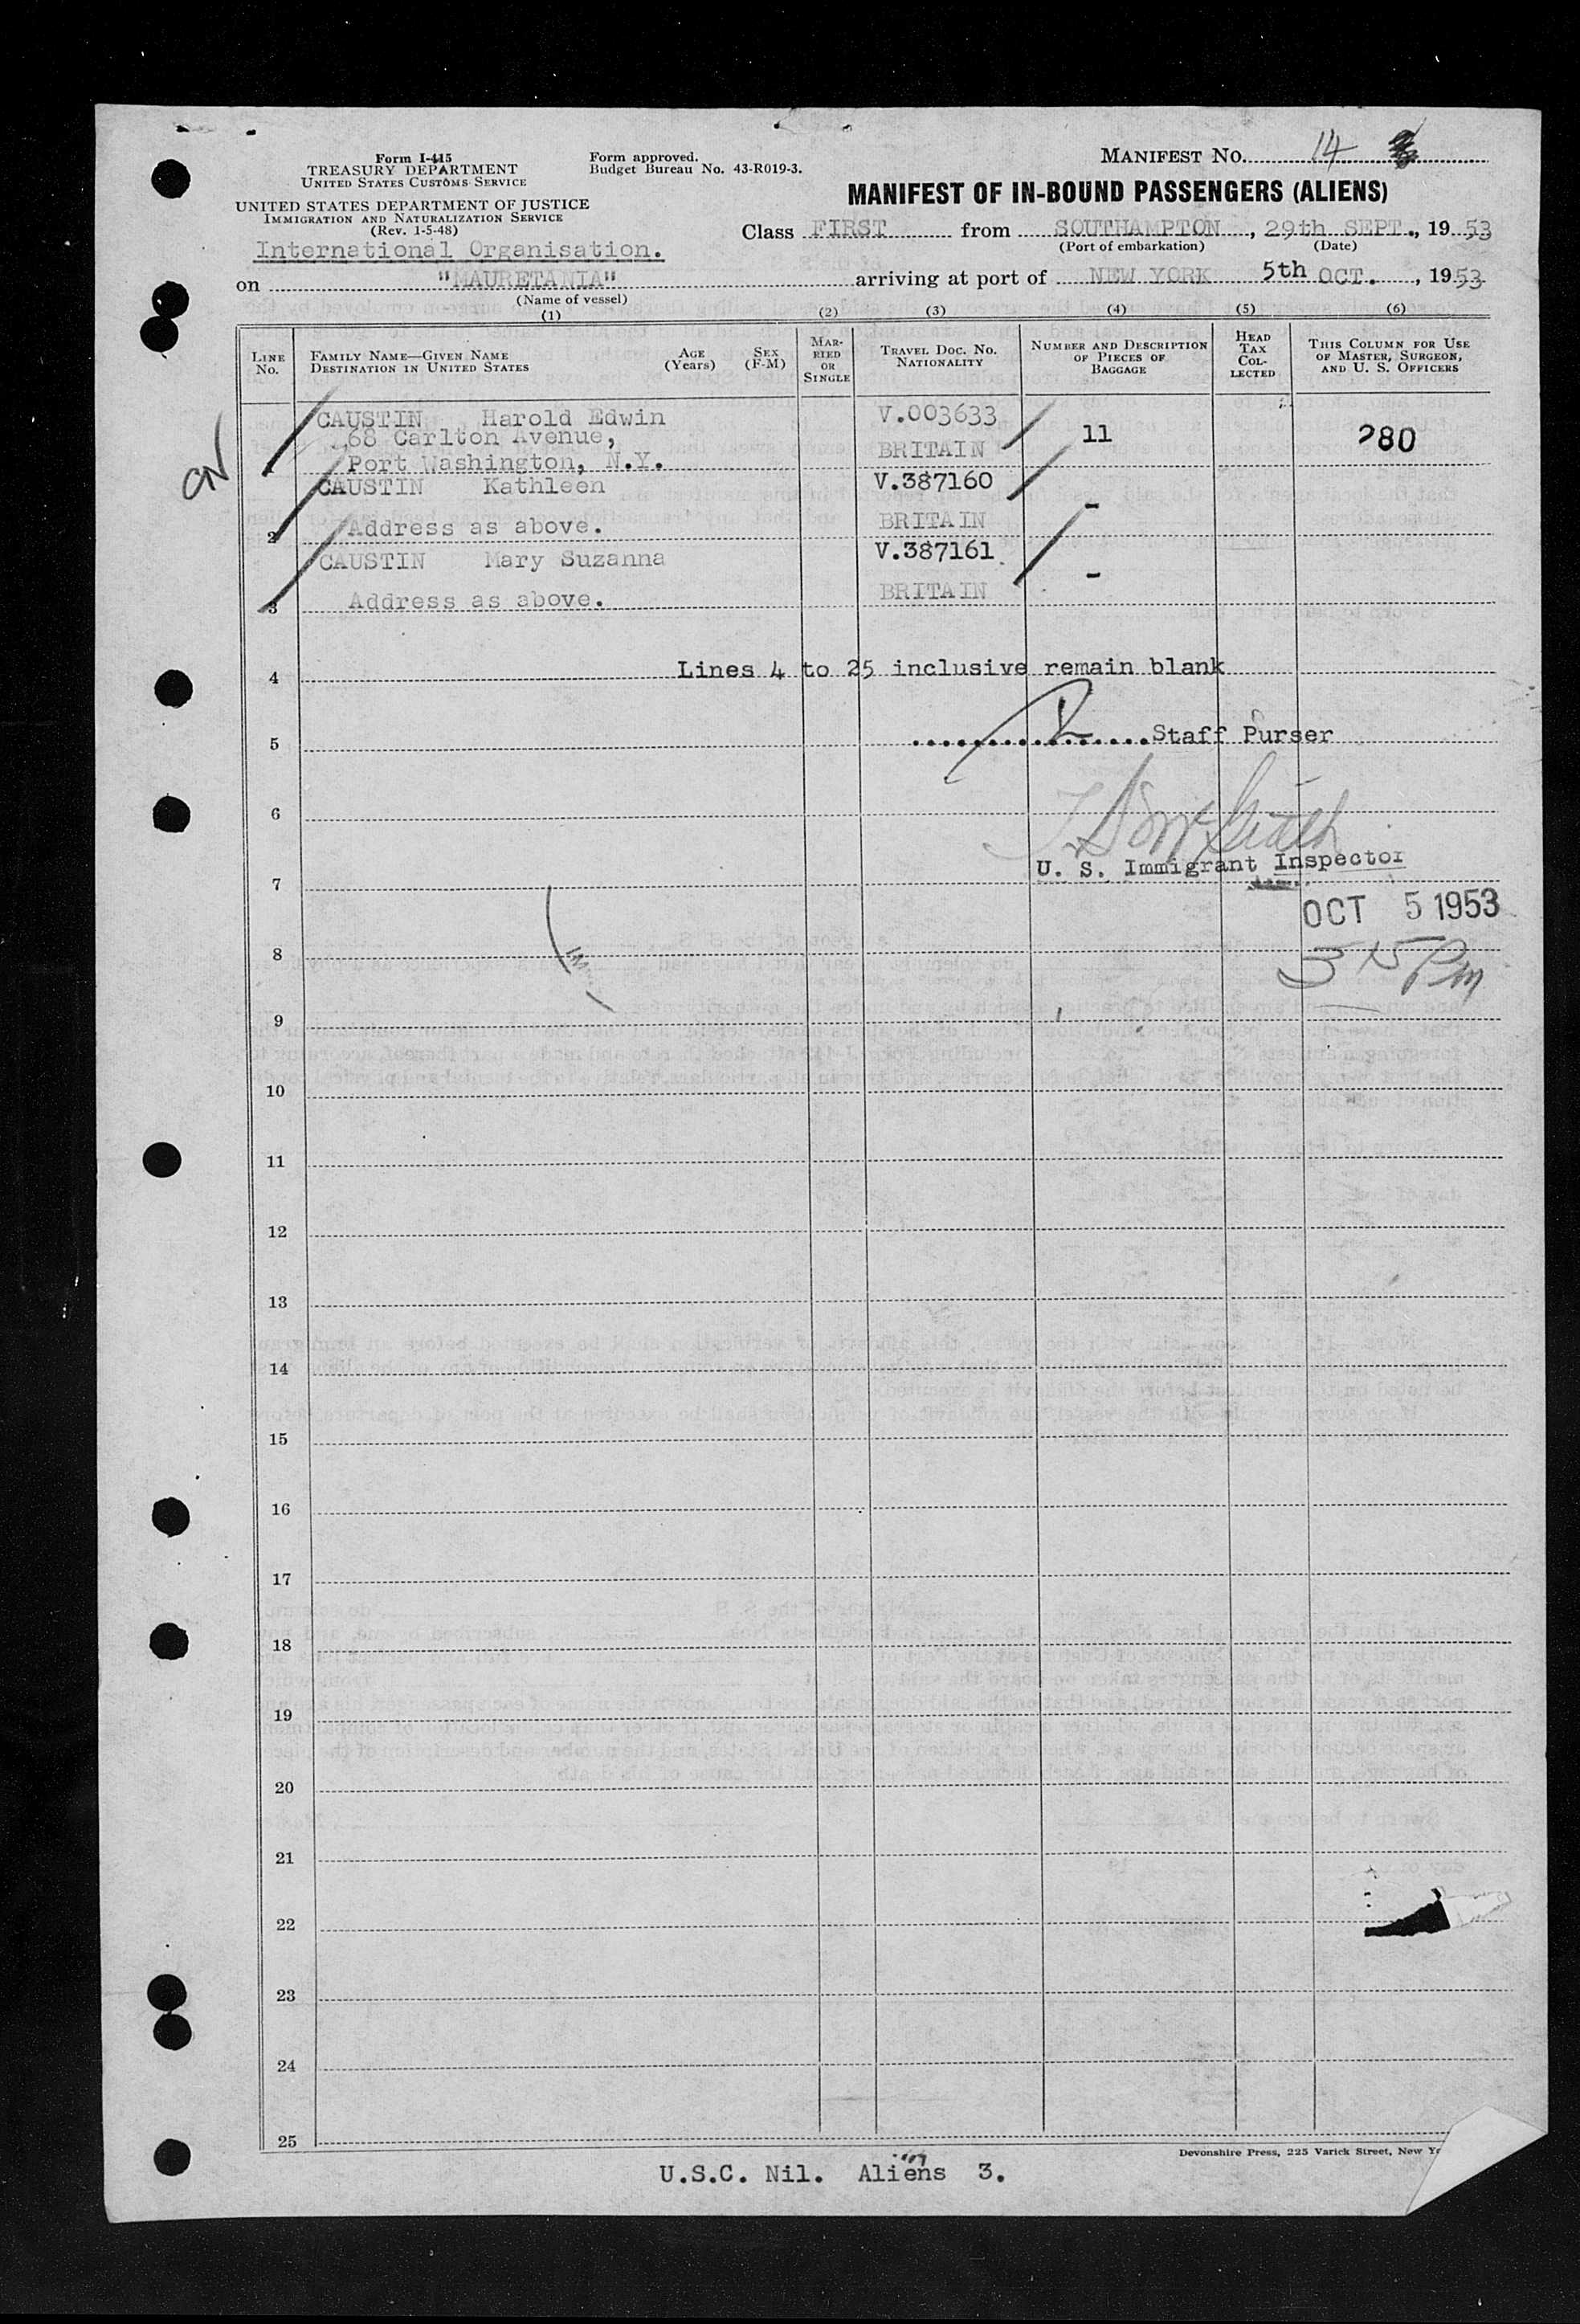 Form I-415
TREASURY DEPARTMENT
UNITED STATES CUSTOMS SERVICE
UNITED STATES DEPARTMENT OF JUSTICE
IMMIGRATION AND NATURALIZATION SERVICE
(Rev. 1-5-48)
International Organisation.
Form approved.
Budget Bureau No. 43-R019-3.
MANIFEST NO. 14
MANIFEST OF IN-BOUND PASSENGERS (ALIENS)
Class FIRST from SOUTHAMPTON, 29th SEPT., 1953
(Port of embarkation) (Date)
on "MAURETANIA" arriving at port of NEW YORK 5th OCT., 1953
(Name of vessel)
(1) (2) (3) (4) (5) (6)
LINE NO.
FAMILY NAME—GIVEN NAME
DESTINATION IN UNITED STATES
AGE (Years)
SEX (F-M)
MARRIED OR SINGLE
TRAVEL DOC. NO.
NATIONALITY
NUMBER AND DESCRIPTION OF PIECES OF BAGGAGE
HEAD TAX COLLECTED
THIS COLUMN FOR USE OF MASTER, SURGEON, AND U. S. OFFICERS
CAUSTIN Harold Edwin V.003633
68 Carlton Avenue, 11 280
1 Port Washington, N.Y. BRITAIN
CAUSTIN Kathleen V.387160
2 Address as above. BRITAIN -
CAUSTIN Mary Suzanna V.387161
3 Address as above. BRITAIN -
4 Lines 4 to 25 inclusive remain blank
5 Staff Purser
6
7 U. S. Immigrant Inspector
OCT 5 1953
8
9
10
11
12
13
14
15
16
17
18
19
20
21
22
23
24
25
Devonshire Press, 225 Varick Street, New
U.S.C. Nil. Aliens 3.